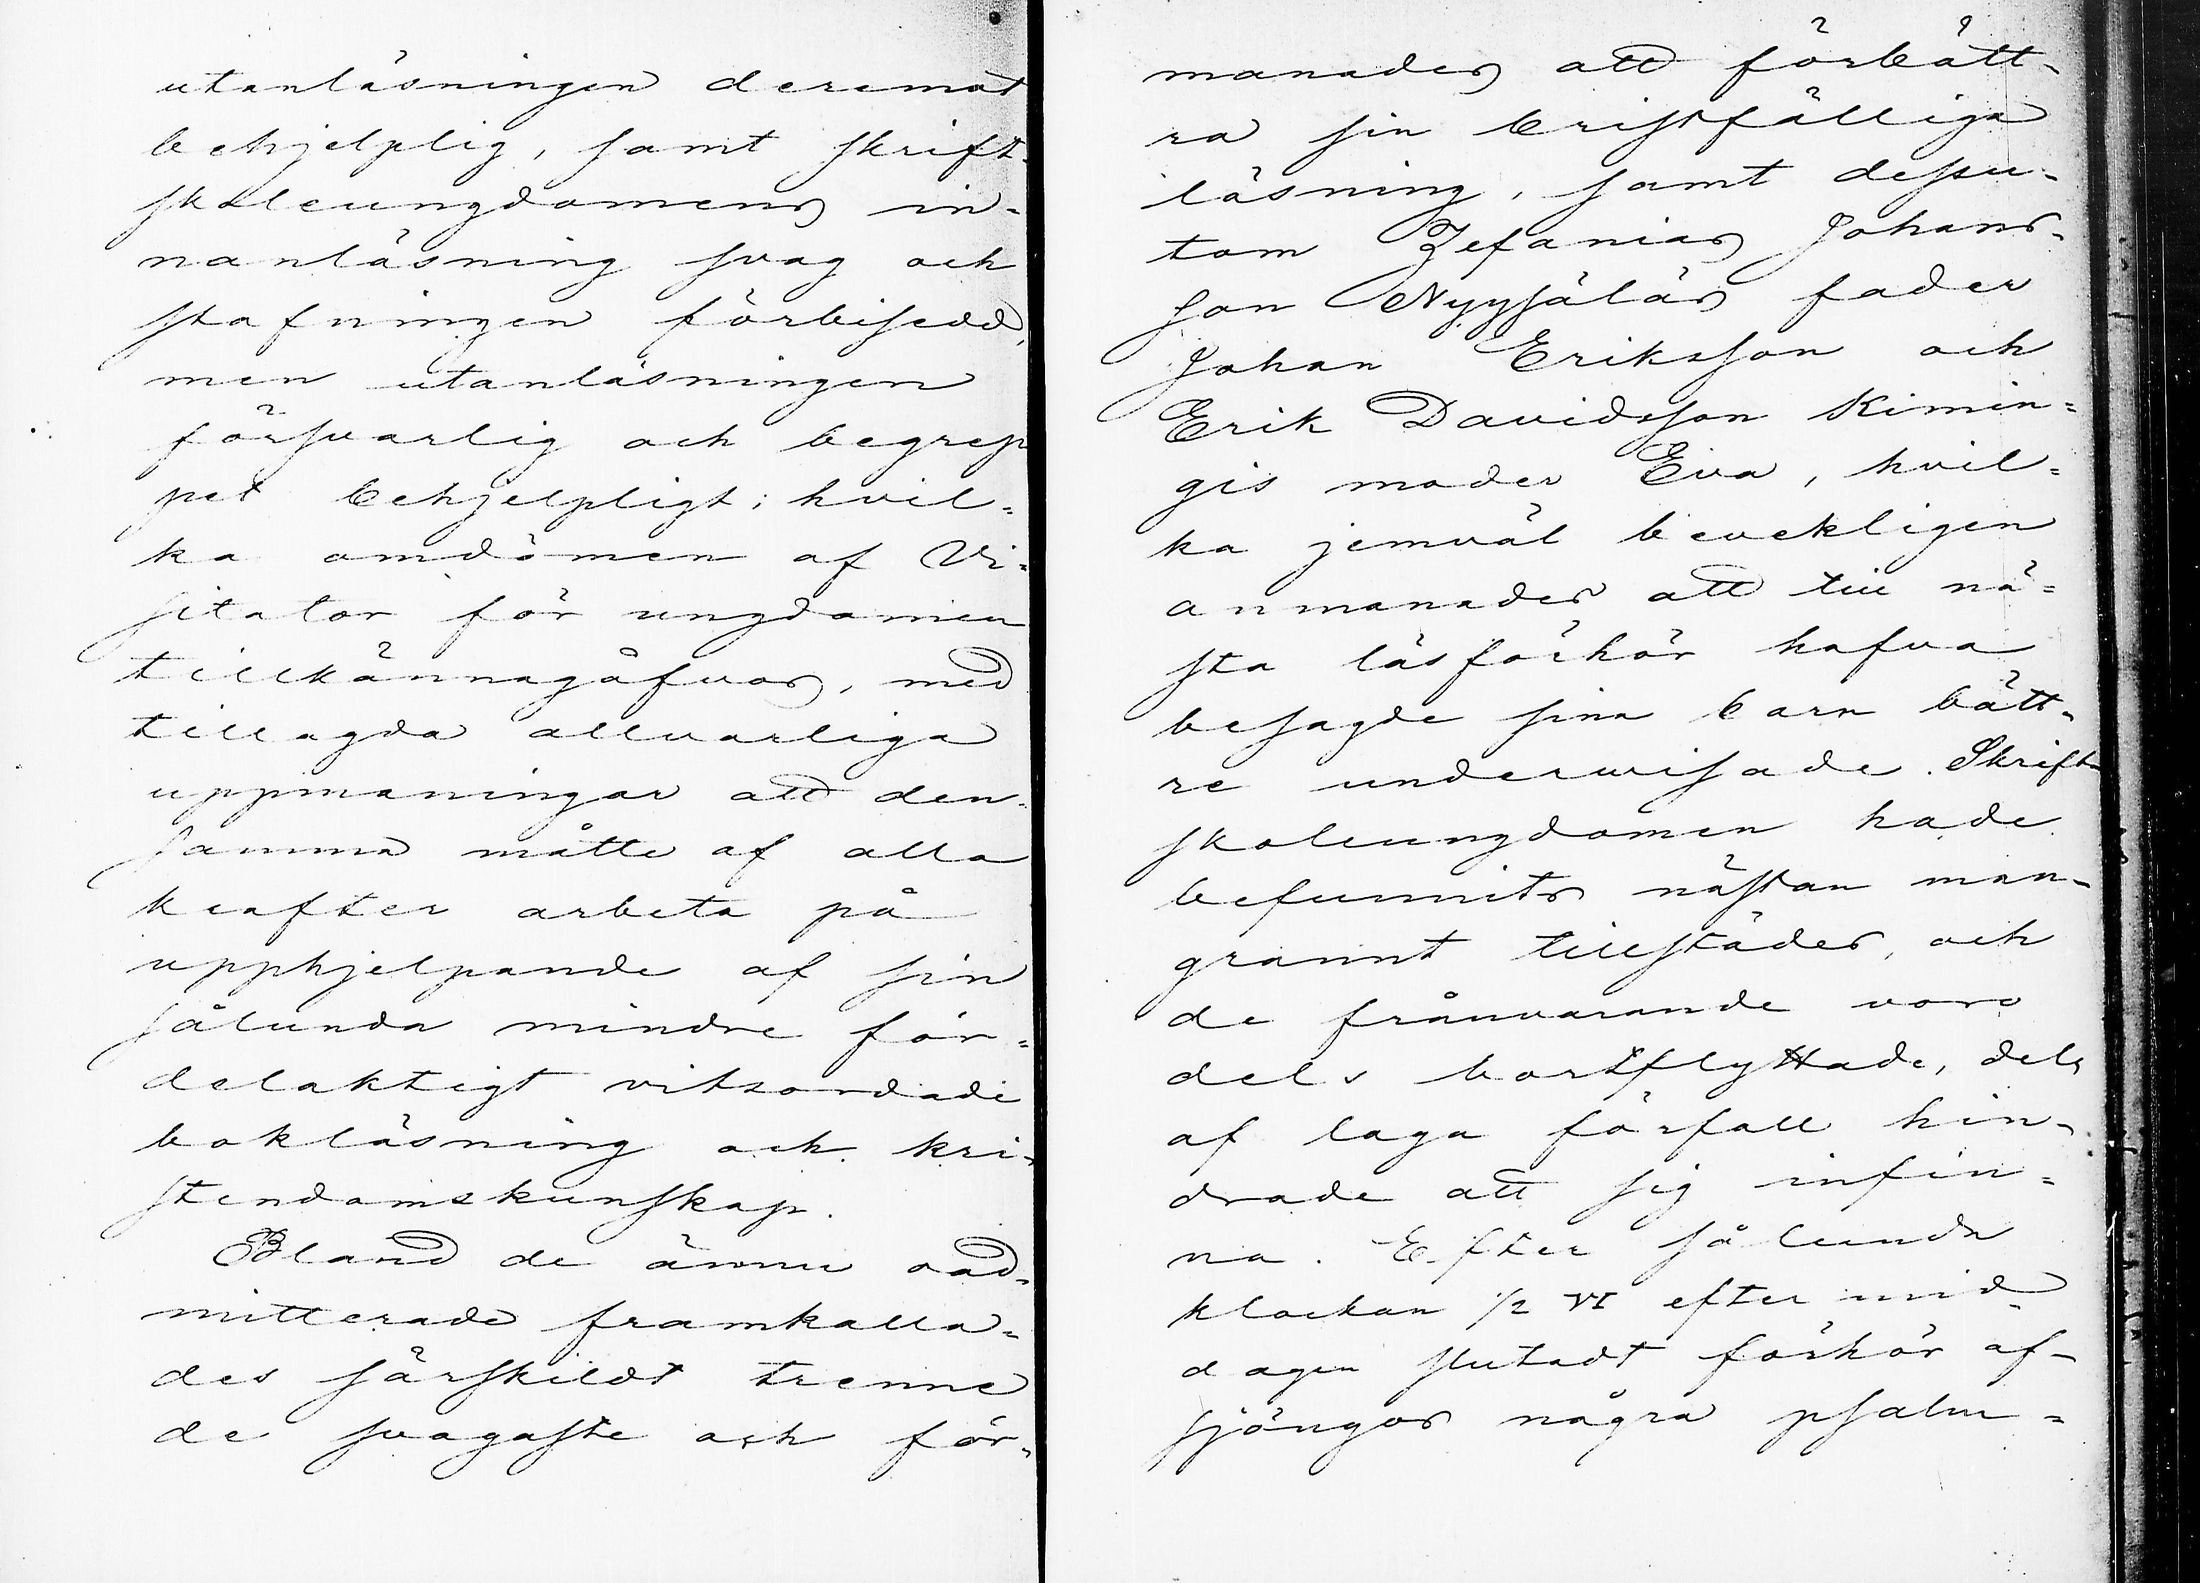 utanläsningen deremot
behjelplig, samt skrift-
skoleungdomens in-
nanläsning svag och
stafningen förbisedd,
men utanläsningen
försvarlig och begrep
pet behjelpligt; hvil-
ka omdömen af Vi-
sitator för ungdomen
tillkännagåfvos, med
tillagda allvarliga
uppmaningar att den-
samma måtte af alla
krafter arbeta på
upphjelpande af sin
sålunda mindre för-
delaktigt vitsordade
bokläsning och kri-
stendomskunskap.
Bland de ännu oad-
mitterade framkalla-
des särskildt trenne
de svagaste och för-
manades att förbätt-
ra sin bristfälliga
läsning, samt dessu-
tom Zefanias Johans-
son Nyysäläs fader
Johan Eriksson och
Erik Davidsson Kimin-
gis moder Eva, hvil-
ka jemväl bevekligen
anmanades att till nä-
sta läsförhör hafva
besagde sina barn bätt-
re underwisade. Skrift-
skoleungdomen hade
befunnits nästan man-
grannt tillstädes, och
de frånvarande voro
dels bortflyttade, dels
af laga förfall hin-
drade att sig infin-
na. Efter sålunda
klockan 1/2 VI efter mid-
dagen slutadt förhör af-
sjöngos några psalm-